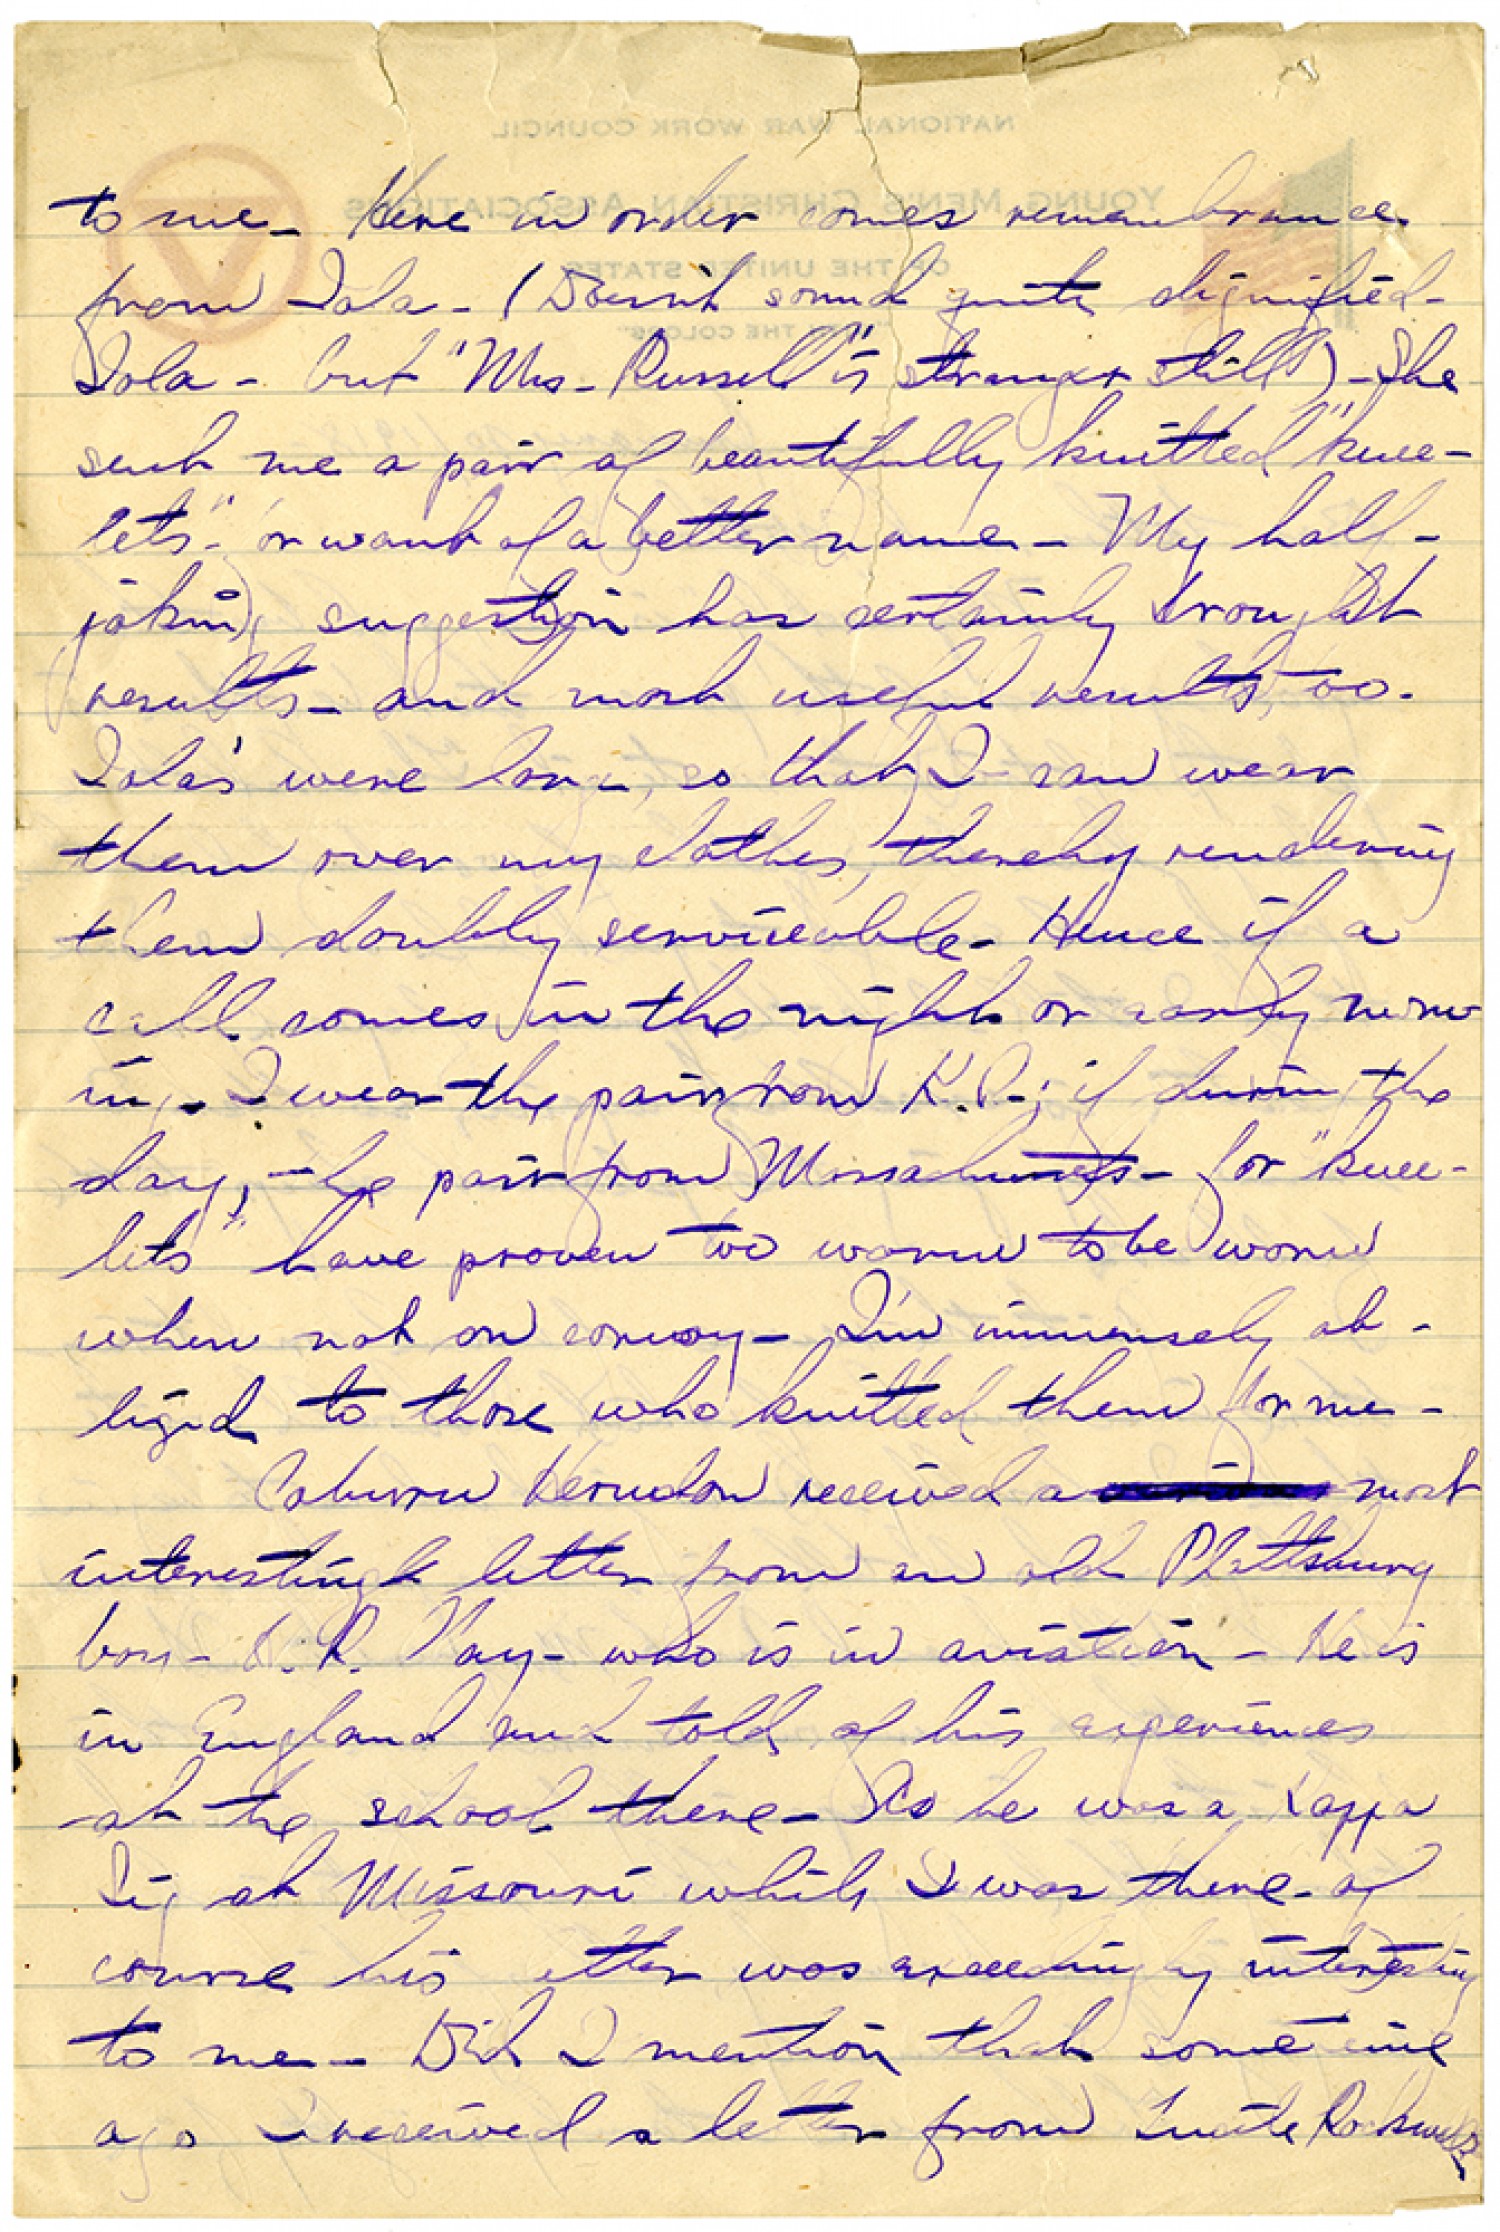 to me – Here in order comes remembrance
from Iola – (Doesn't sound quite dignified –
Iola – but "Mrs – Russell" is stranger still) – She
sent me a pair of beautifully knitted "knee-
lets" – for want of a better name – My half-
joking suggestion has certainly brought
results – and most useful results, too.
Iola's were long, so that I can wear
them over my clothes, thereby rendering
them doubly serviceable – Hence if a
call comes in the night or early morn-
ing – I wear the pair from K.C.; if during the
day, – the pair from Massachusetts – for "knee-
lets" have proven too warm to be worn
when not on convoy – I'm immensely ob-
liged to those who knitted them for me –
Coburn Herndon received a most
interesting letter from an old Plattsburg
boy – R. Nay – who is in aviation – He is
in England and told of his experiences
at the school there – As he was a Kappa
Sig at Missouri while I was there – of
course his letter was exceedingly interesting
to me – Did I mention that some time
ago I received a letter from Lucile Rockwell
NATIONAL WAR WORK COUNCIL
YOUNG MEN'S CHRISTIAN ASSOCIATIONS
OF THE UNITED STATES
"WITH THE COLORS"